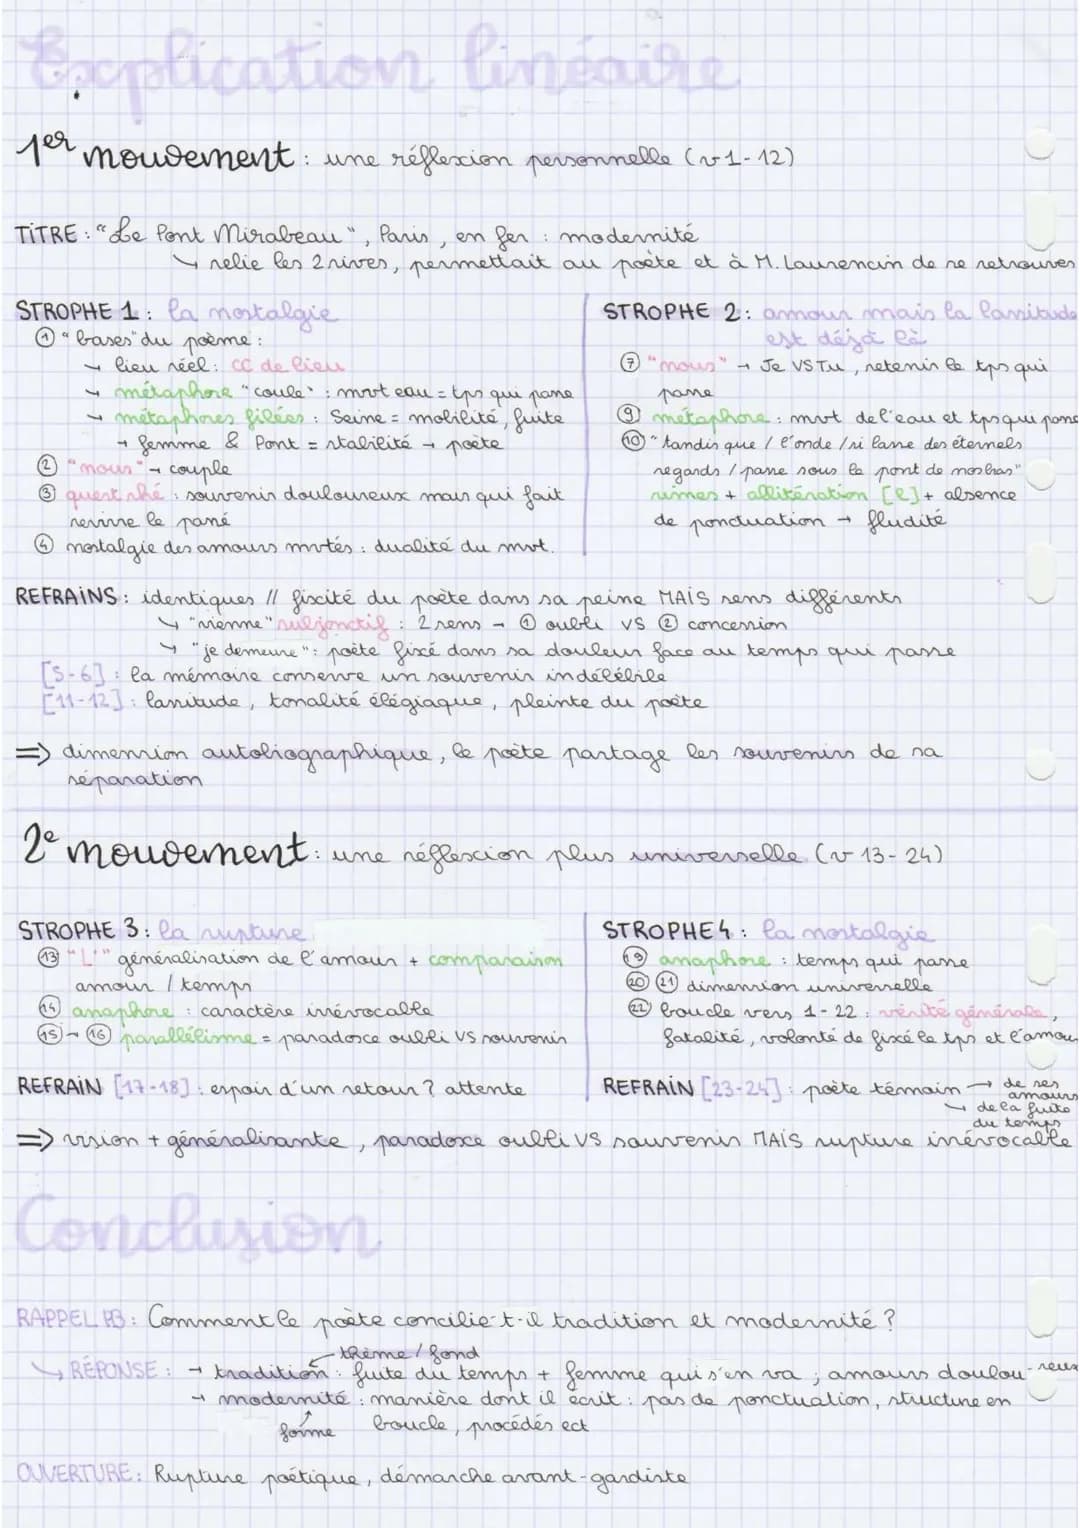 Explication linéaire
1er mouvement : une réflexion personnelle (v 1-12)
TITRE : "Le Pont Mirabeau", Paris, en fer : modernité
↳ relie les 2 rives, permettait au poète et à M. Laurencin de se retrouver
STROPHE 1 : la nostalgie
① "bases" du poème :
→ lieu réel : CC de lieu
→ métaphore "coule" : mvt eau = tps qui passe
→ métaphores filées : Seine = mobilité, fuite
→ femme & Pont = stabilité → poète
② "nous" → couple
③ quest rhé : souvenir douloureux mais qui fait
revivre le passé
④ nostalgie des amours mvtés : dualité du mvt.
STROPHE 2 : amour mais la lassitude
est déjà là
⑦ "nous" → Je VS Tu, retenir le tps qui
passe
⑨ métaphore : mvt de l'eau et tps qui passe
⑩ "tandis que / l'onde / si lasse des éternels
regards / passe sous le pont de nos bras"
rimes + allitération [l] + absence
de ponctuation → fludité
REFRAINS : identiques // fixité du poète dans sa peine MAIS sens différents
↳ "vienne" subjonctif : 2 sens → ① oubli VS ② concession
↳ "je demeure" : poète fixé dans sa douleur face au temps qui passe
[5-6] : la mémoire conserve un souvenir indélébile
[11-12] : lassitude, tonalité élégiaque, pleinte du poète
=> dimension autobiographique, le poète partage les souvenirs de sa
séparation
2e mouvement : une réflexion plus universelle (v 13-24)
STROPHE 3 : la rupture
⑬ "L'" généralisation de l'amour + comparaison
amour / temps
⑭ anaphore : caractère irrévocable
⑮ → ⑯ parallélisme = paradoxe oubli VS souvenir
STROPHE 4 : la nostalgie
⑲ anaphore : temps qui passe
⑳ ㉑ dimension universelle
㉒ boucle vers 1-22 : vérité générale,
fatalité, volonté de fixé le tps et l'amour
REFRAIN [17-18] : espoir d'un retour ? attente
REFRAIN [23-24] : poète témoin → de ses
amours
↳ de la fuite
du temps
=> vision + généralisante, paradoxe oubli VS souvenir MAIS rupture irrévocable
Conclusion
RAPPEL PB : Comment le poète concilie-t-il tradition et modernité ?
thème / fond
↳ RÉPONSE : → tradition : fuite du temps + femme qui s'en va ; amours doulou-reux
→ modernité : manière dont il écrit : pas de ponctuation, structure en
forme boucle, procédés ect
OUVERTURE : Rupture poétique, démarche avant-gardiste